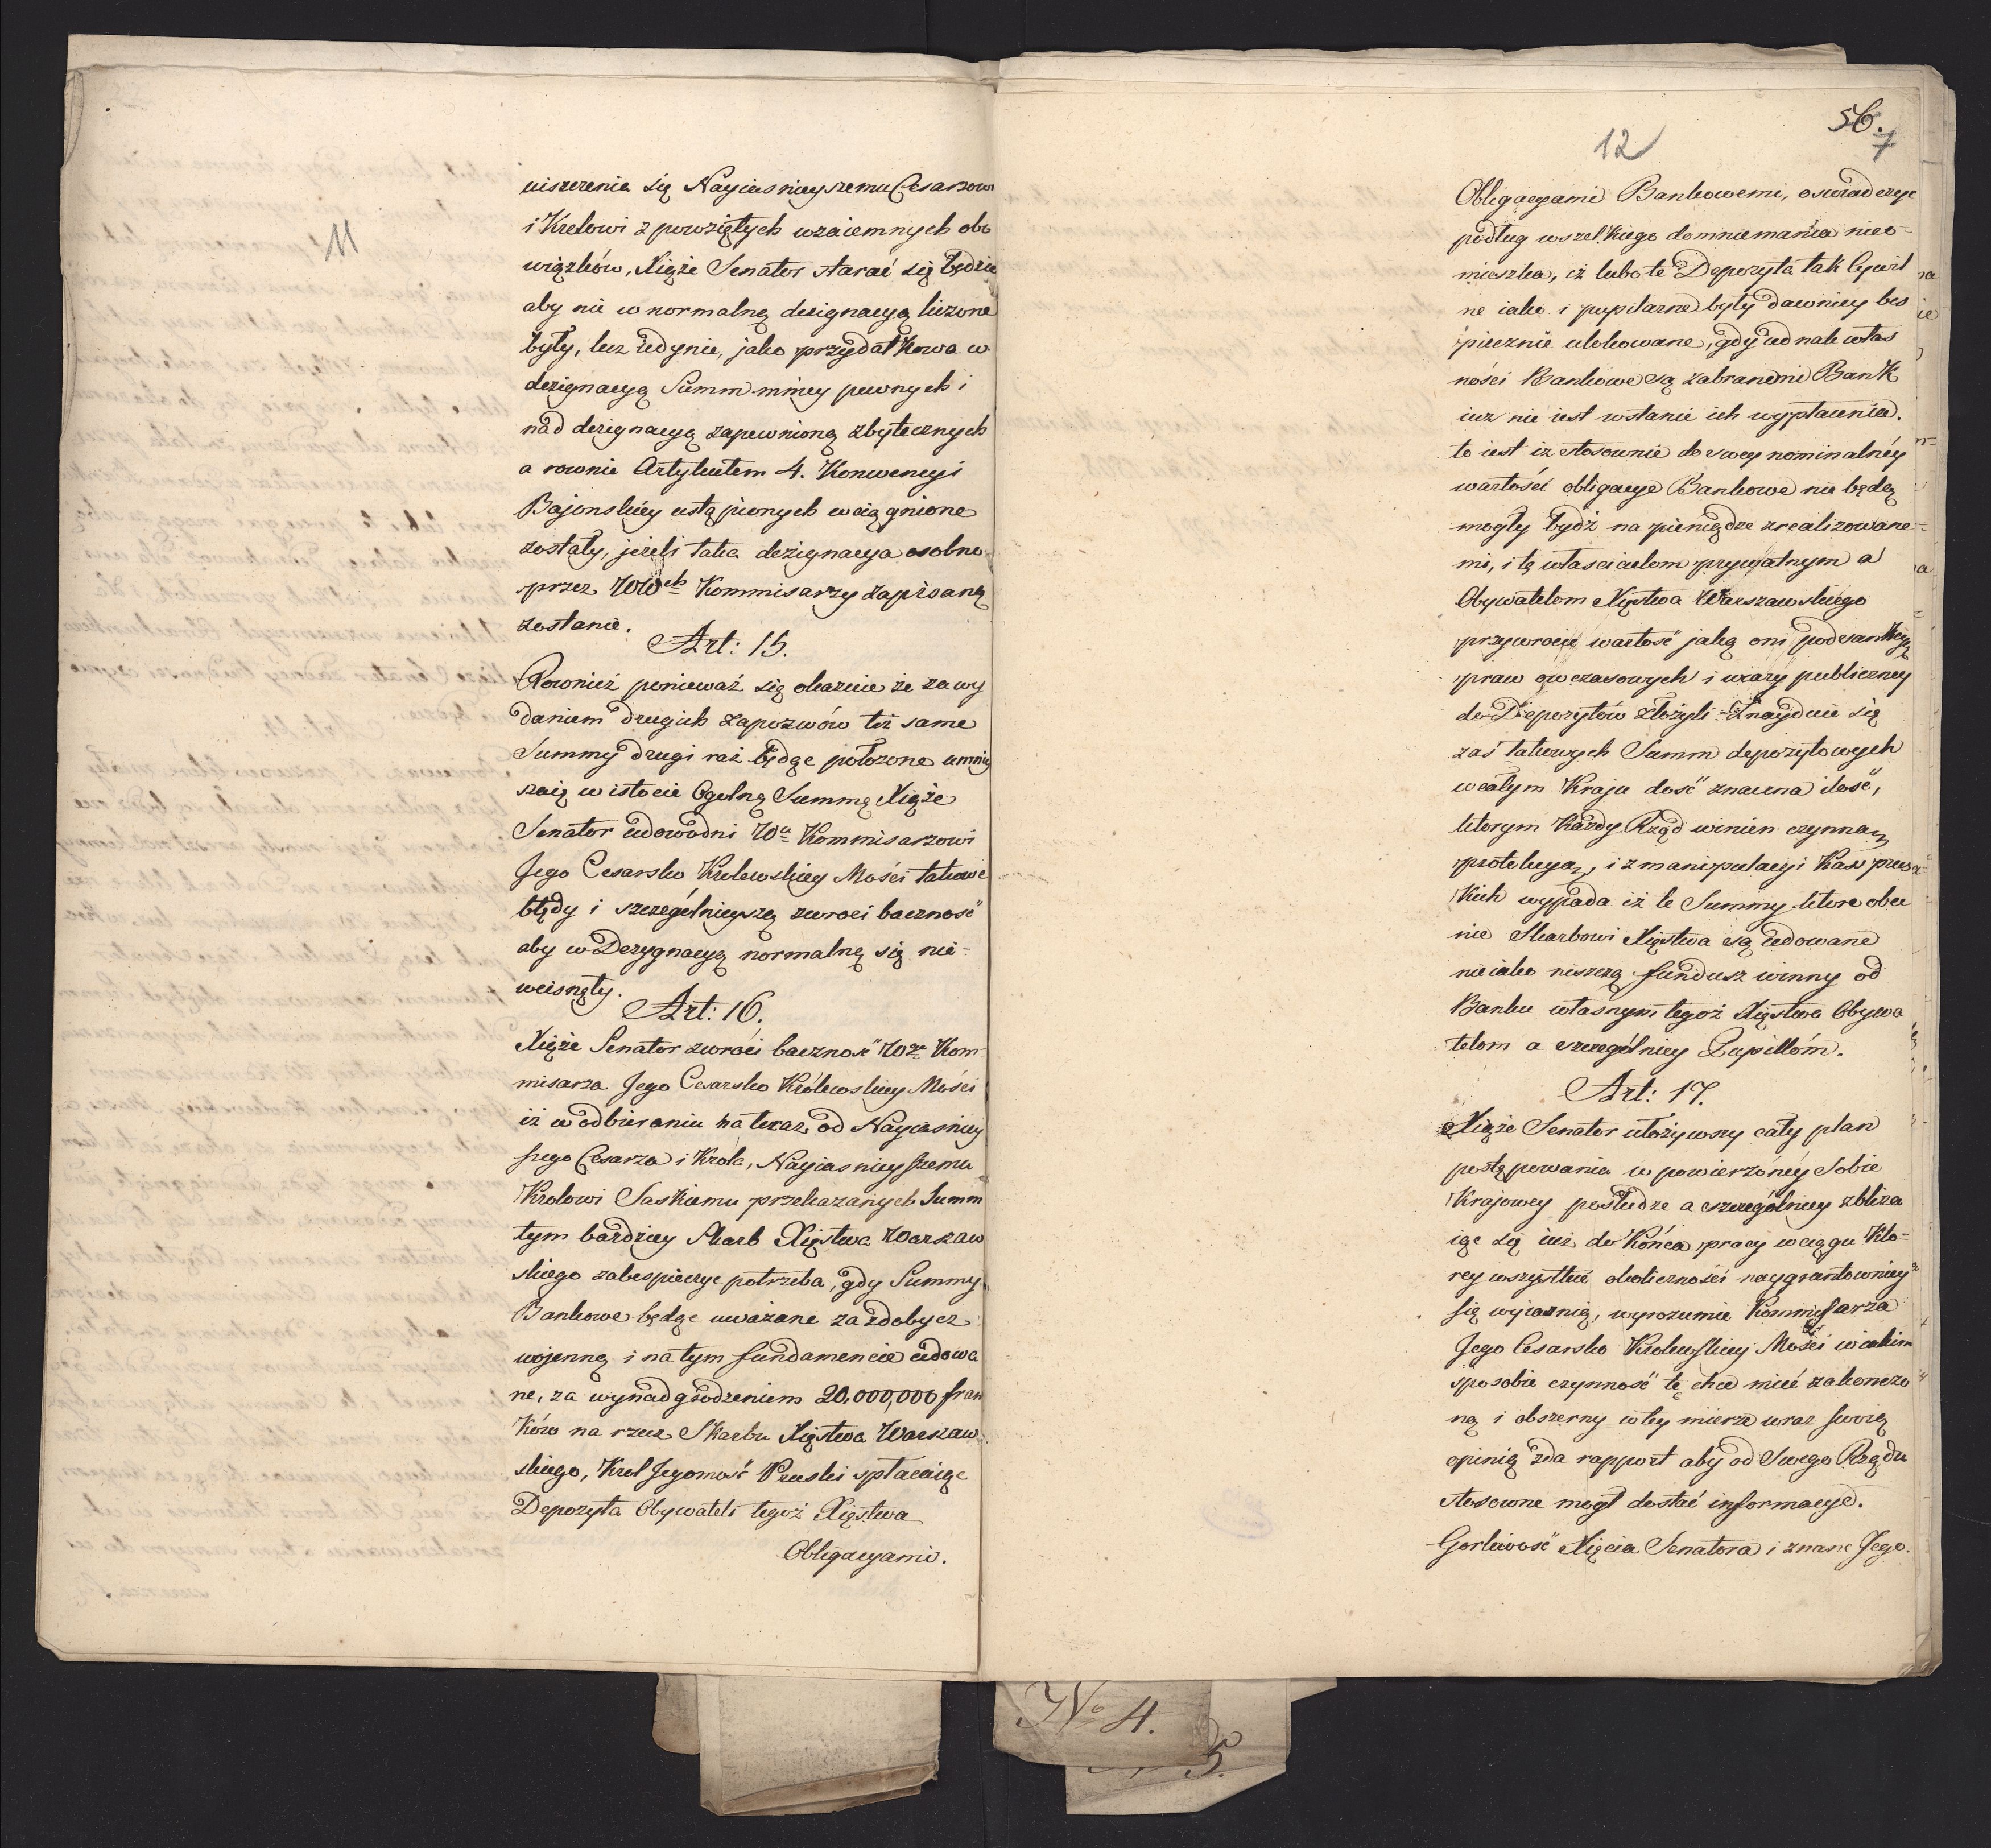 11
uiszczenia się Nayiaśnieyszemu Cesarzowi
i Krolowi z powziętych wzaiemnych obo
wiązków, Xiąże Senator starać się będzie
aby nie w normalną dezignacyą liczone
były, lecz iedynie, jako przydatkowa w
dezignacyą Summ mniey pewnych i
nad dezignacyą zapewnioną zbytecznych
a rownie Artykułem 4. Konwencyi
Bajonskiey ustąpionych wciągnione
zostały, jeżeli taka dezignacya osobno
przez WW Kommisarzy zapisaną
zostanie.
Art: 15.
Rownież ponieważ się okazuie że za wy
daniem drugich zapozwów też same
Summy drugi raz będąc położone zmniey
szaią w istocie Ogolną Summę Xiąże
Senator udowodni Wu Kommisarzowi
Jego Cesarsko Krolewskiey Mości takowe
błędy i szczegolnieyszą zwroci baczność
aby w Dezygnacyą normalną się nie-
wcisnęły.
Art: 16.
Xiąże Senator zwroći baczność Wgo Kom-
misarza Jego Cesarsko Królewskiey Mości
iż w odbieraniu na teraz od Nayiaśniey
szego Cesarza i Króla, Nayiasnieyszemu
Krolowi Saskiemu przekazanych Summ
tym bardziey Skarb Xięstwa Warszaw
skiego zabespieczyć potrzeba, gdy Summy
Bankowe będąc uważane za zdobycz
wojenną i na tym fundamencie cedowa
ne, za wynadgrodzeniem 20,000,000 fran
ków na rzecz Skarbu Xięstwa Warszaw
skiego, Krol Jegomość Pruski spłacaiąc
Depozyta Obywateli tegoż Xięstwa
Obligacyami.
56.
7
12
Obligacyami Bankowemi, oswiadczyć
podług wszelkiego domniemania nieo-
mieszka, iż lubo te Depozyta tak Cywil
ne iako i pupilarne były dawniey bes
piecznie ulokowane, gdy iednak włas
ności Bankowe są zabranemi Bank
iuz nie iest w stanie ich wypłacenia.
to iest iż stosownie do swey nominalnéy
wartości obligacye Bankowe nie będą
mogły bydź na pieniądze zrealizowane-
mi, i tę właścicielom prywatnym a
Obywatelom Xięstwa Warszawskiego
przywrocić wartość jaką oni pod sankcyą
praw ówczasowych i wiary publiczney
do Depozytów złożyli. Znayduie się
zaś takowych Summ depozytowych
w całym Kraju dość znaczna ilość,
ktorym każdy Rząd winien czynną
protekcyą, i z manipulacyi Kass prus-
kich wypada iż te Summy ktore obec
nie Skarbowi Xięstwa są cedowane
nieiako niszczą fundusz winny od
Banku własnym tegoż Xięstwa Obywa
telom a szczególniey Pupillóm.
Art: 17.
Xiąże Senator ułożywszy cały plan
postępowania w powierzónéy Sobie
Krajowey posłudze a szczególniey zbliża
iąc się iuż do końca pracy w ciągu kto-
rey wszystkie okoliczności naygruntowniey
się wyiaśnią, wyrozumie Kommissarza
Jego Cesarsko Krolewskiey Mości w iakim
sposobie czynność tę chce mieć zakonczo
ną i obszerny w tey mierze wraz swoią
opinią zda rapport aby od Swego Rządu
stosowne mogł dostać informacye.
Gorliwość Xięcia Senatora i znane Jego.
No 4.
5.